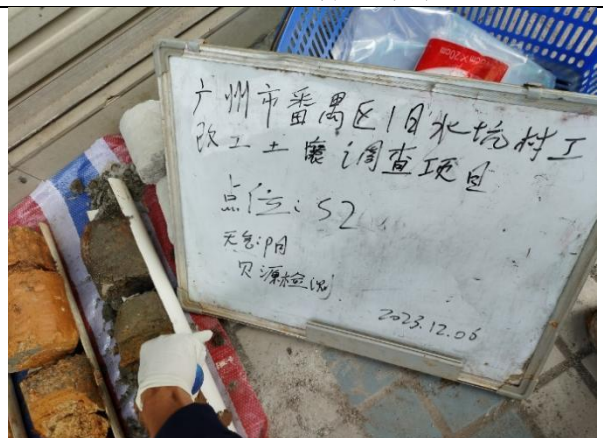 广州市番禺区旧水坑村工
改工土壤调查项目
点位：S2
天气：阴
贝源检测
2023.12.06